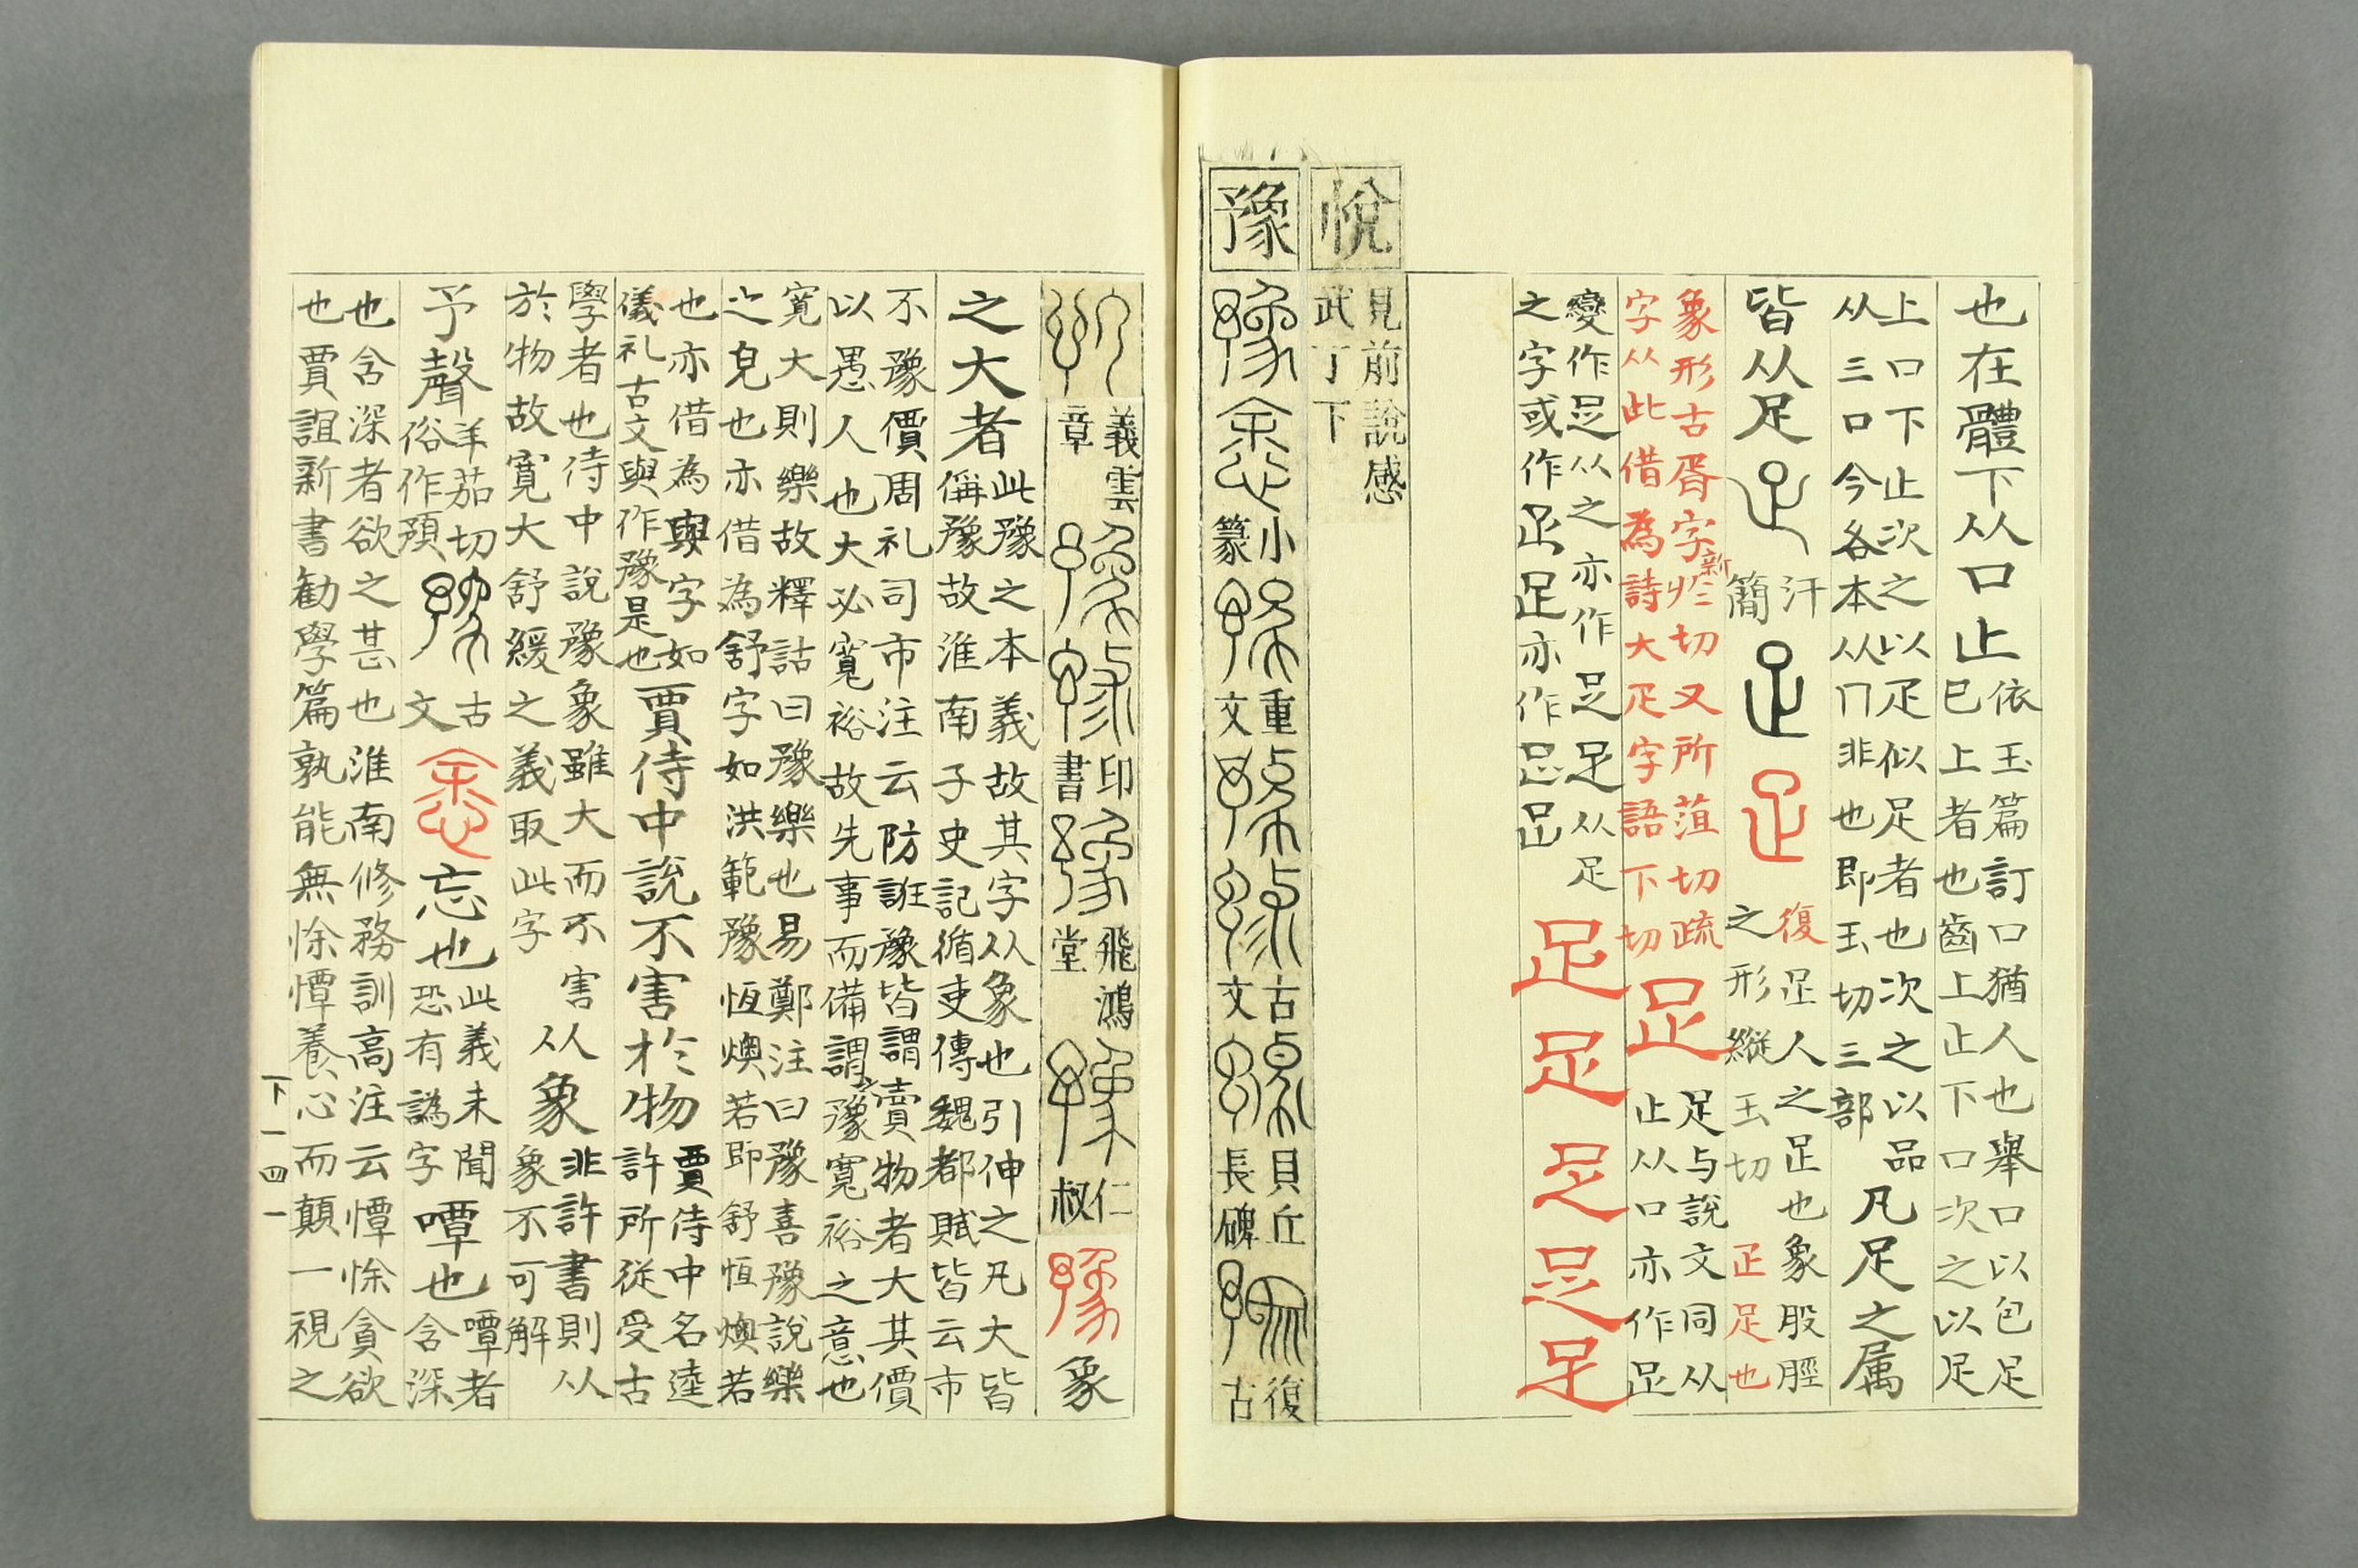 也在體下从口止
依玉篇訂口猶人也舉口以包足
巳上者也齒上止下口次之以足
上口下止次之以疋似足者也次之以品
从三口今各本从冂非也即玉切三部
凡足之属
皆从足
汗簡
復足人之足也象股脛
之形縱玉切 疋足也
象形古胥字新於切又所菹切疏
字从此借為詩大疋字語下切
足
足与說文同从
止从口亦作足
變作足从之亦作足足从足
之字或作足足亦作足足
足足足足足
悅
見前說感
武丁下
豫
豫悆
小篆
重文
古文
貝丘長碑
復古
義雲章
印書
飛鴻堂
仁叔
豫象
之大者
此豫之本義故其字从象也引伸之凡大皆
偁豫故淮南子史記循吏傳魏都賦皆云市
不豫價周礼司市注云防誑豫皆謂賣物者大其價
以愚人也大必寬裕故先事而備謂之豫寬裕之意也
寬大則樂故釋詁曰豫樂也易鄭注曰豫喜豫說樂
之皃也亦借為舒字如洪範豫恆燠若即舒恆燠若
也亦借為與字如
儀礼古文與作豫是也
賈侍中說不害於物
賈侍中名逵
許所從受古
學者也侍中說豫象雖大而不害
於物故寬大舒緩之義取此字
从象
非許書則从
象不可解
予聲
羊茹切
俗作預
古文
悆忘也
此義未聞
恐有譌字
嘾也
嘾者
含深
也含深者欲之甚也淮南修務訓高注云憛悇貪欲
也賈誼新書勸學篇孰能無悇憛養心而顛一視之
下一四一